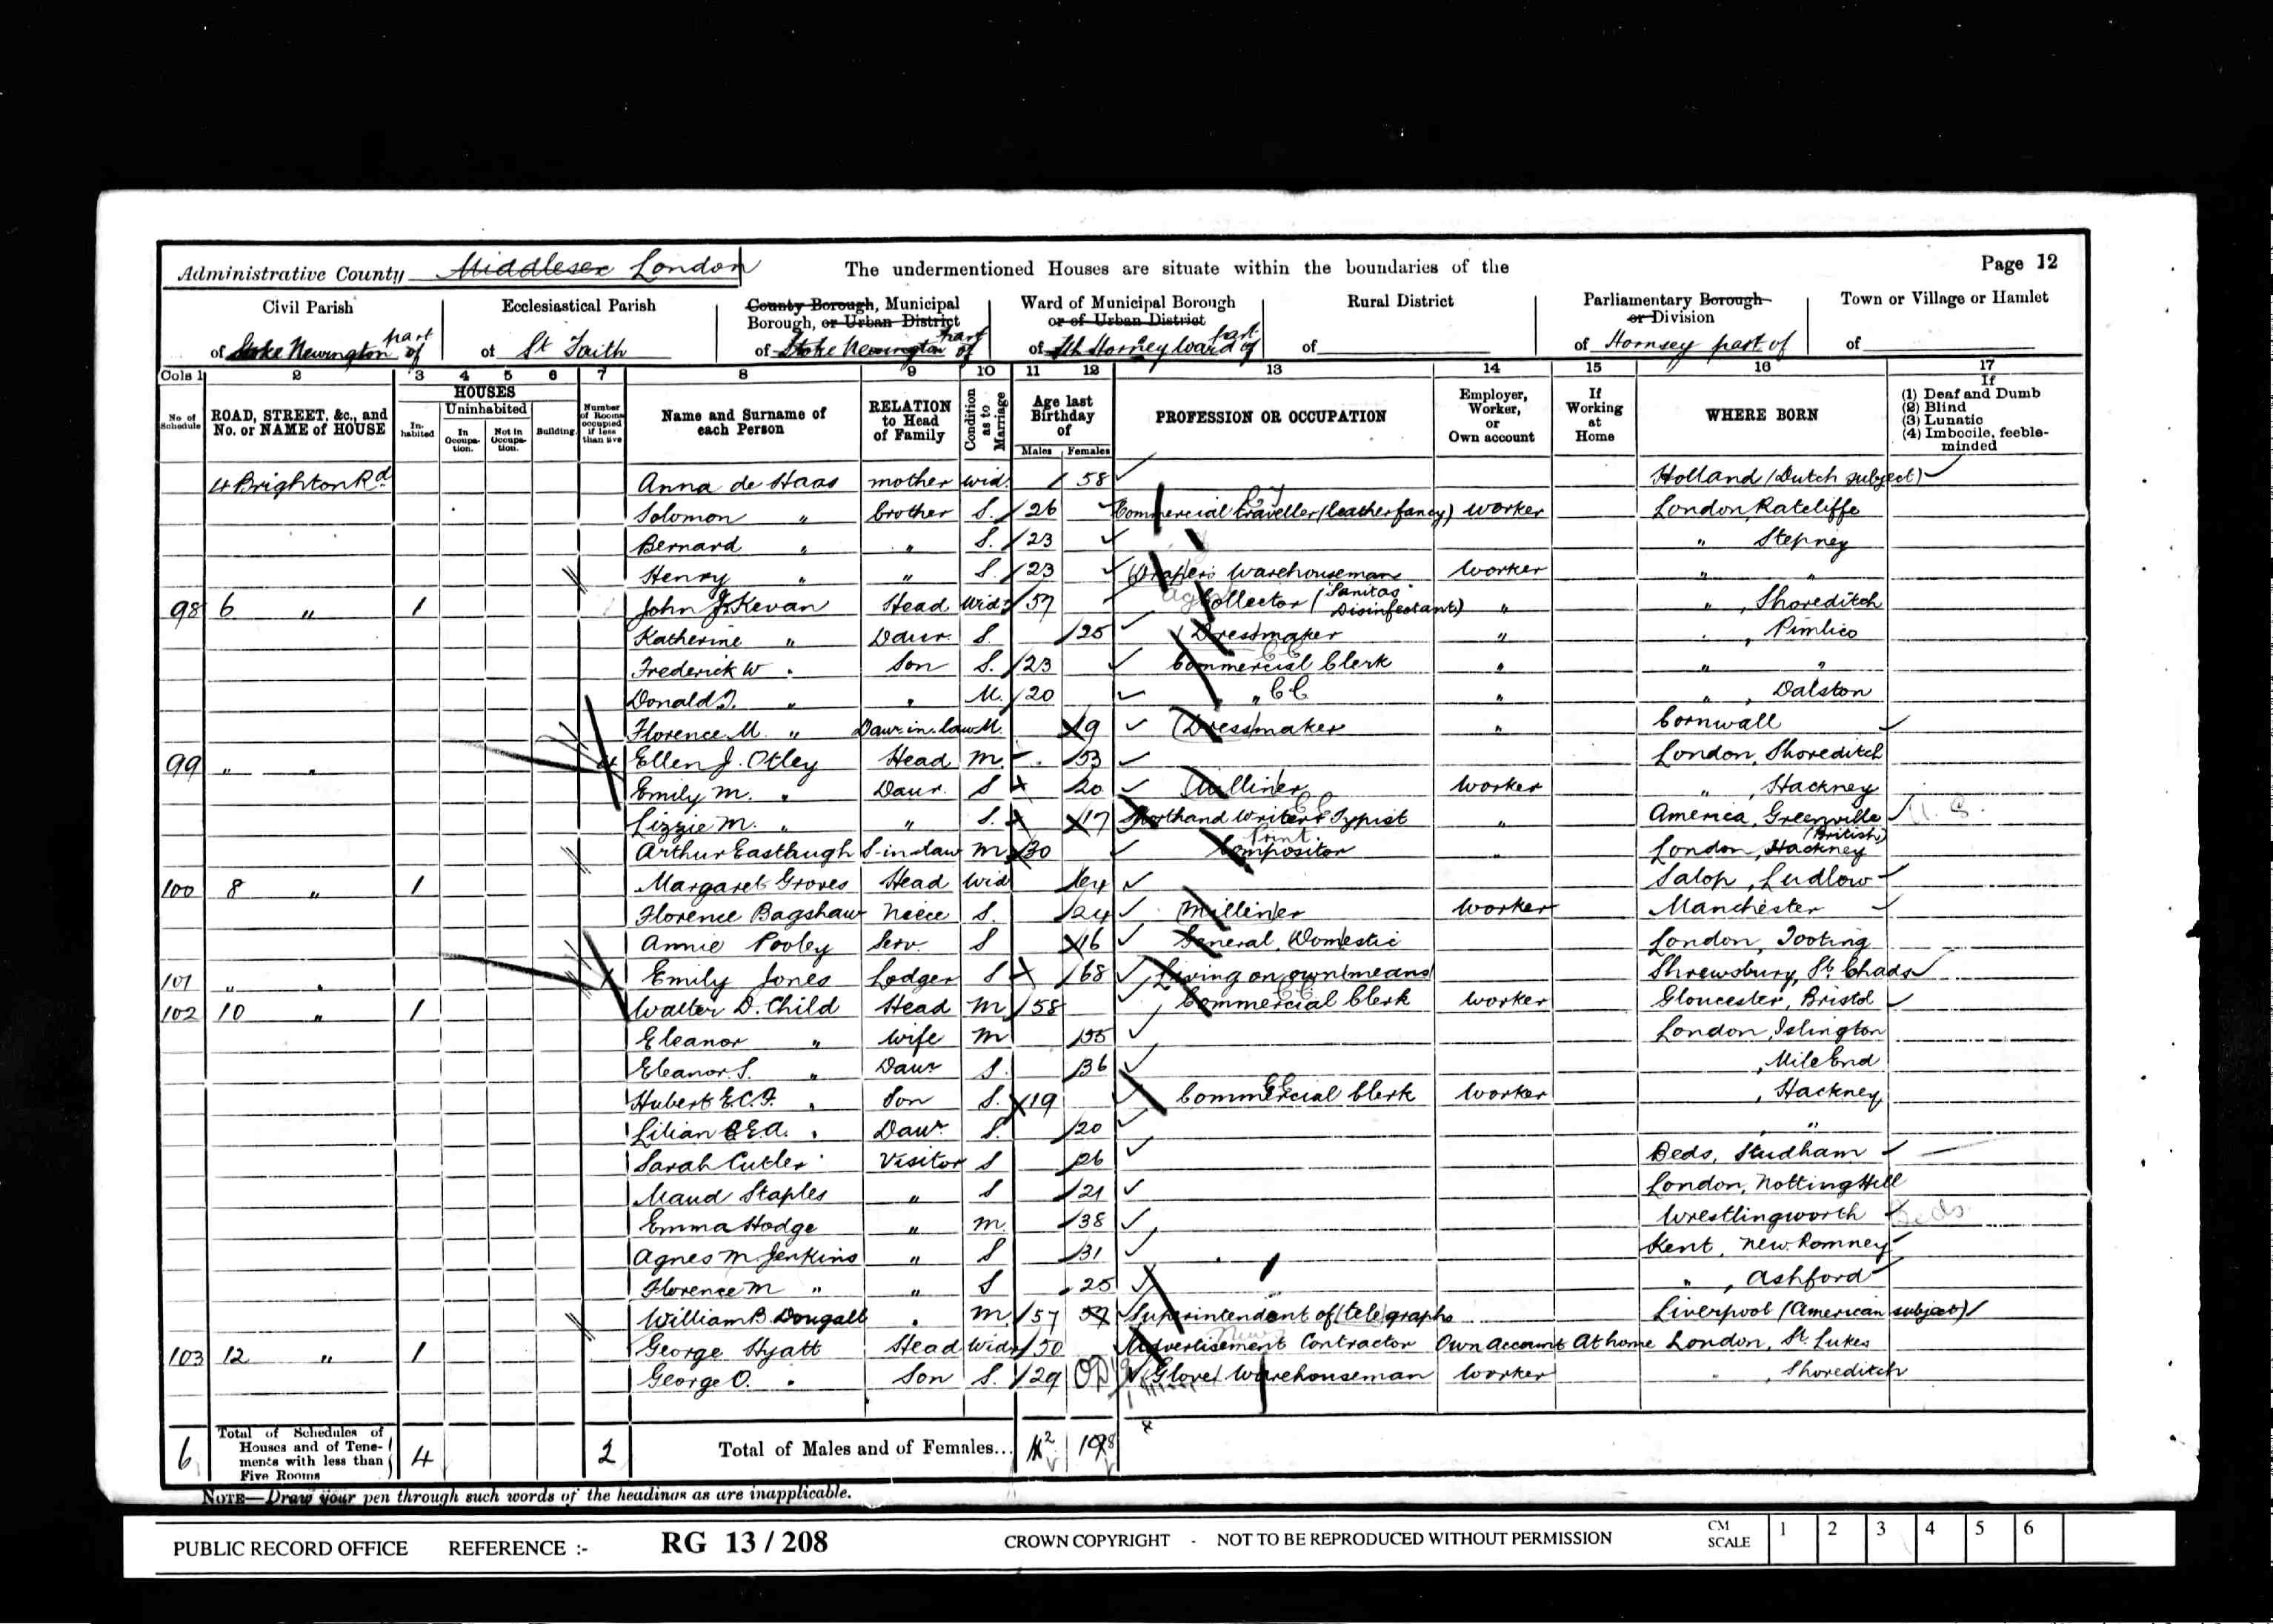 Administrative County Middlesex London The undermentioned Houses are situate within the boundaries of the Page 12
Civil Parish Ecclesiastical Parish County Borough, Municipal Borough, or Urban District Ward of Municipal Borough or of Urban District Rural District Parliamentary Borough or Division Town or Village or Hamlet
of Stoke Newington part of of St Faith of Stoke Newington part of of Sth Hornsey Ward part of of of Hornsey part of of
Cols 1 2 3 4 5 6 7 8 9 10 11 12 13 14 15 16 17
No. of Schedule ROAD, STREET, &c., and No. or NAME of HOUSE HOUSES Inhabited Uninhabited In Occupation. Not in Occupation. Building. Number of Rooms occupied if less than five Name and Surname of each Person RELATION to Head of Family Condition as to Marriage Age last Birthday of Males Females PROFESSION OR OCCUPATION Employer, Worker, or Own account If Working at Home WHERE BORN If (1) Deaf and Dumb (2) Blind (3) Lunatic (4) Imbecile, feeble-minded
4 Brighton Rd Anna de Haas mother Wid. 58 Holland (Dutch subject)
Solomon " brother S. 26 Commercial traveller (leather fancy) worker London, Ratcliffe
Bernard " " S. 23 " Stepney
Henry " " S. 23 Drapers Warehouseman Worker " "
98 6 " 1 John J. Kevan Head Wid. 57 Collector ("Sanitas" Disinfectant) " " , Shoreditch
Katherine " Daur. S. 25 Dressmaker " " , Pimlico
Frederick W " Son S. 23 Commercial Clerk " " "
Donald J. " " M. 20 " CC " " , Dalston
Florence M. " Daur-in-law M. 19 Dressmaker " Cornwall
99 " " 4 Ellen J. Otley Head M. 53 London, Shoreditch
Emily M. " Daur. S 20 Milliner worker " , Hackney
Lizzie M. " " S. 17 Shorthand Writer & Typist " America, Greenville (British) U. S.
Arthur Eastaugh S-in-law M 30 Compositor " London, Hackney
100 8 " 1 Margaret Groves Head Wid 64 Salop, Ludlow
Florence Bagshaw Niece S. 24 Milliner Worker Manchester
Annie Pooley Serv. S 16 General, Domestic London, Tooting
101 " " Emily Jones Lodger S 68 Living on own means Shrewsbury, St Chads
102 10 " 1 Walter D. Child Head M 58 Commercial Clerk Worker Gloucester, Bristol
Eleanor " Wife M 55 London, Islington
Eleanor S. " Daur S. 36 , Mile End
Hubert E.C.F. " Son S. 19 Commercial Clerk Worker , Hackney
Lilian E.A. " Daur. S. 20 "
Sarah Cutler Visitor S 26 Beds, Studham
Maud Staples " S 21 London, Notting Hill
Emma Hodge " M. 38 Wrestlingworth Beds
Agnes M. Jenkins " S 31 Kent, New Romney
Florence M " " S 25 " , Ashford
William B. Dougall " M 57 Superintendent of telegraphs Liverpool (American subject)
103 12 " 1 George Hyatt Head Widr 50 Advertisement Contractor Own Account At home London, St. Lukes
George O. " Son S. 29 Glove Warehouseman Worker " , Shoreditch
6 Total of Schedules of Houses and of Tenements with less than Five Rooms 4 2 Total of Males and of Females... 12 18
NOTE—Draw your pen through such words of the headings as are inapplicable.
PUBLIC RECORD OFFICE REFERENCE :- RG 13 / 208 CROWN COPYRIGHT - NOT TO BE REPRODUCED WITHOUT PERMISSION CM SCALE 1 2 3 4 5 6